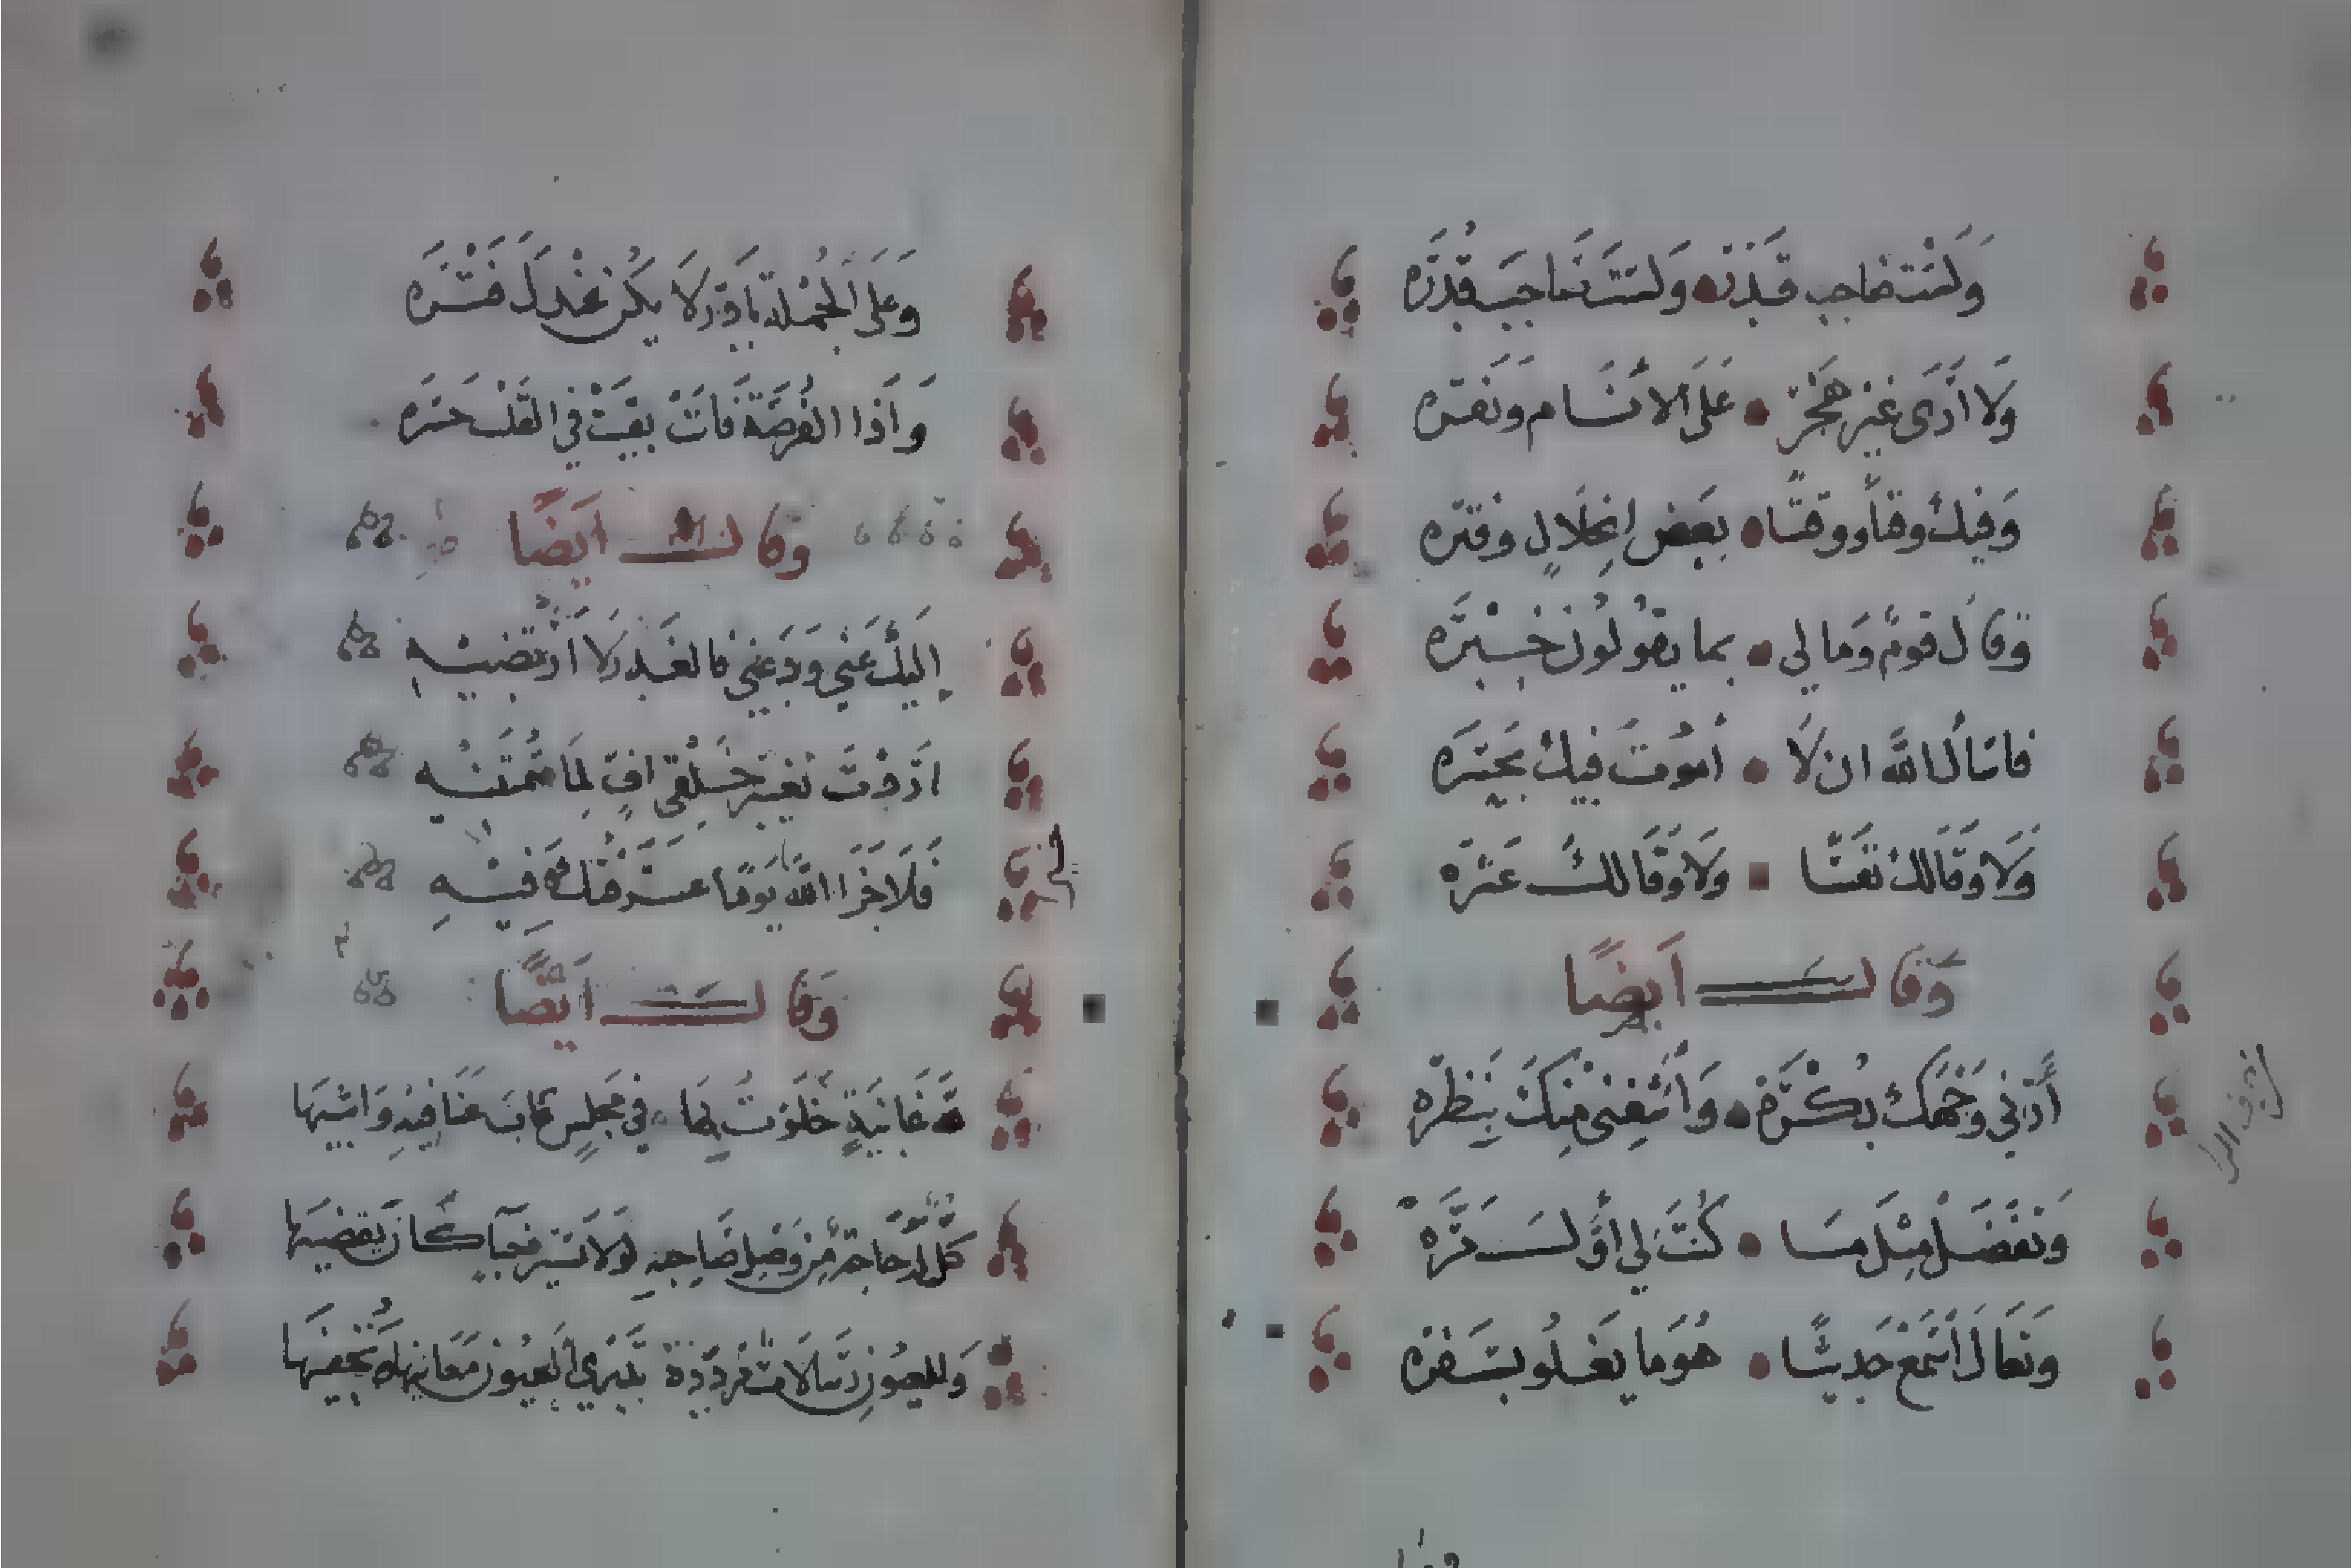 وَلَسْتَ صَاحِب قَدَرْته وَلَسْتَ صَاحِبَ قُدرَه
وَلَا أَرَى غَيْرَ هَجْرٍ عَلَى الأَنَام وَنَفْره
وَفِيكَ وَقْتاً وَوَقْتًا بِبَعْض انْحِلَالٍ وَفَتْره
وَقَالَ قَومٌ وَمَا لي بما يَقُولُونَ خِبْرَه
فَاسْأَلُ اللَّهَ ان لَا أَمُوتَ فِيكَ بِحَسْرَه
وَلَا وَقَالَكَ نَفْسًا وَلَا وَقَالَكَ عَثْرَه
وَقَالَ أَيضًا
أَرِنِي وَجْهَكَ بُكْرَه وَاشْفِنِي مِنْكَ بِنَظْرَه
وَتَفَضَّلْ مِثْلَ مَا كُنْتَ لِي أَوَّلَ مَرَّه
وَتَعَالَ اسْمَعْ حَدِيثًا هُوَ مَا يَغْلُو بِسَفْرَه
وَعَلَى الْجُمْلَةِ بَادِر لَا يَكُنْ عِنْدَكَ فَتْرَه
وَاذَا الْفُرْصَةُ فَاتَتْ بَقِيَتْ فِي الْقَلْبِ حَسْرَه
وَقَالَ ايَضًا
إِلَيْكَ عَنِّي وَدَعْنِي فالغَدْر لَا أَرْتَضِيْهِ
ارَدْتَ تَغْيِيرَ خُلُقِي افٍّ لِمَا سُمْتَنِيْهِ
فَلَا جَزَا اللَّهُ يَوْمًا عَرَفْتُكَ فِيْهِ
وَقَالَ ايَضًا
غَانِيَةٍ خَلَوْتُ بِهَا في مَجْلِسٍ غَابَ عَنَّا فِيْهِ وَاشِيْهَا
كُلٌّ لَهُ حَاجَةٌ مِنْ وَصْلِ صَاحِبِهِ لَوْلَا يَسِيْرُ حَيَاءٍ كَانَ يَقْضِيْهَا
وَلِلْعُيُونِ رَسَالَاتٌ مُرَدَّدَةٌ تَدْرِي الْعُيُونُ مَعَانِيْهَا وَتُخْفِيْهَا